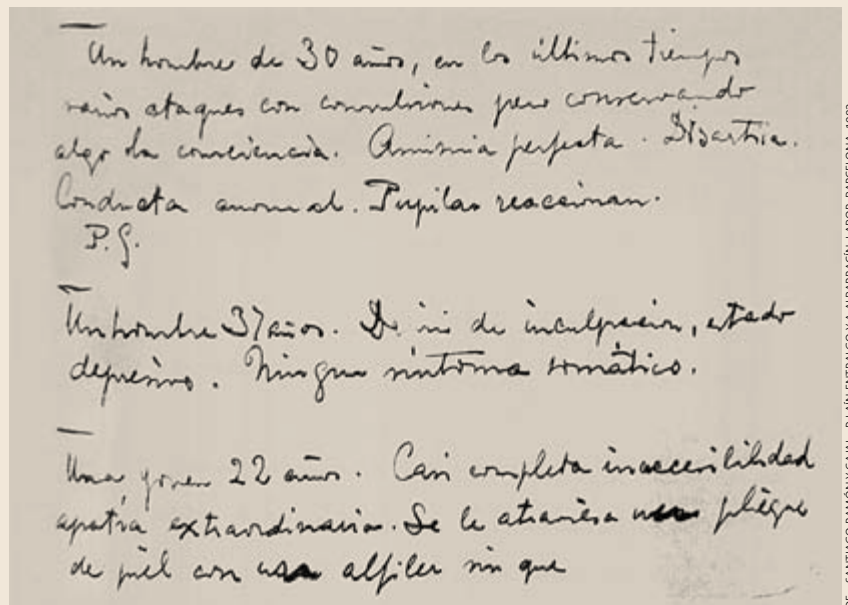 Un hombre de 30 años, en los últimos tiempos
varios ataques con convulsiones pero conservando
algo la consciencia. Amimia perfecta. Disartria.
Conducta anormal. Pupilas reaccionan.
P. G.
Un hombre 37 años. De de inculpacion, estado
depresivo. Ningun síntoma somático.
Una joven 22 años. Casi completa inaccesibilidad
apatía extraordinaria. Se le atraviesa un pliegue
de piel con un alfiler sin que